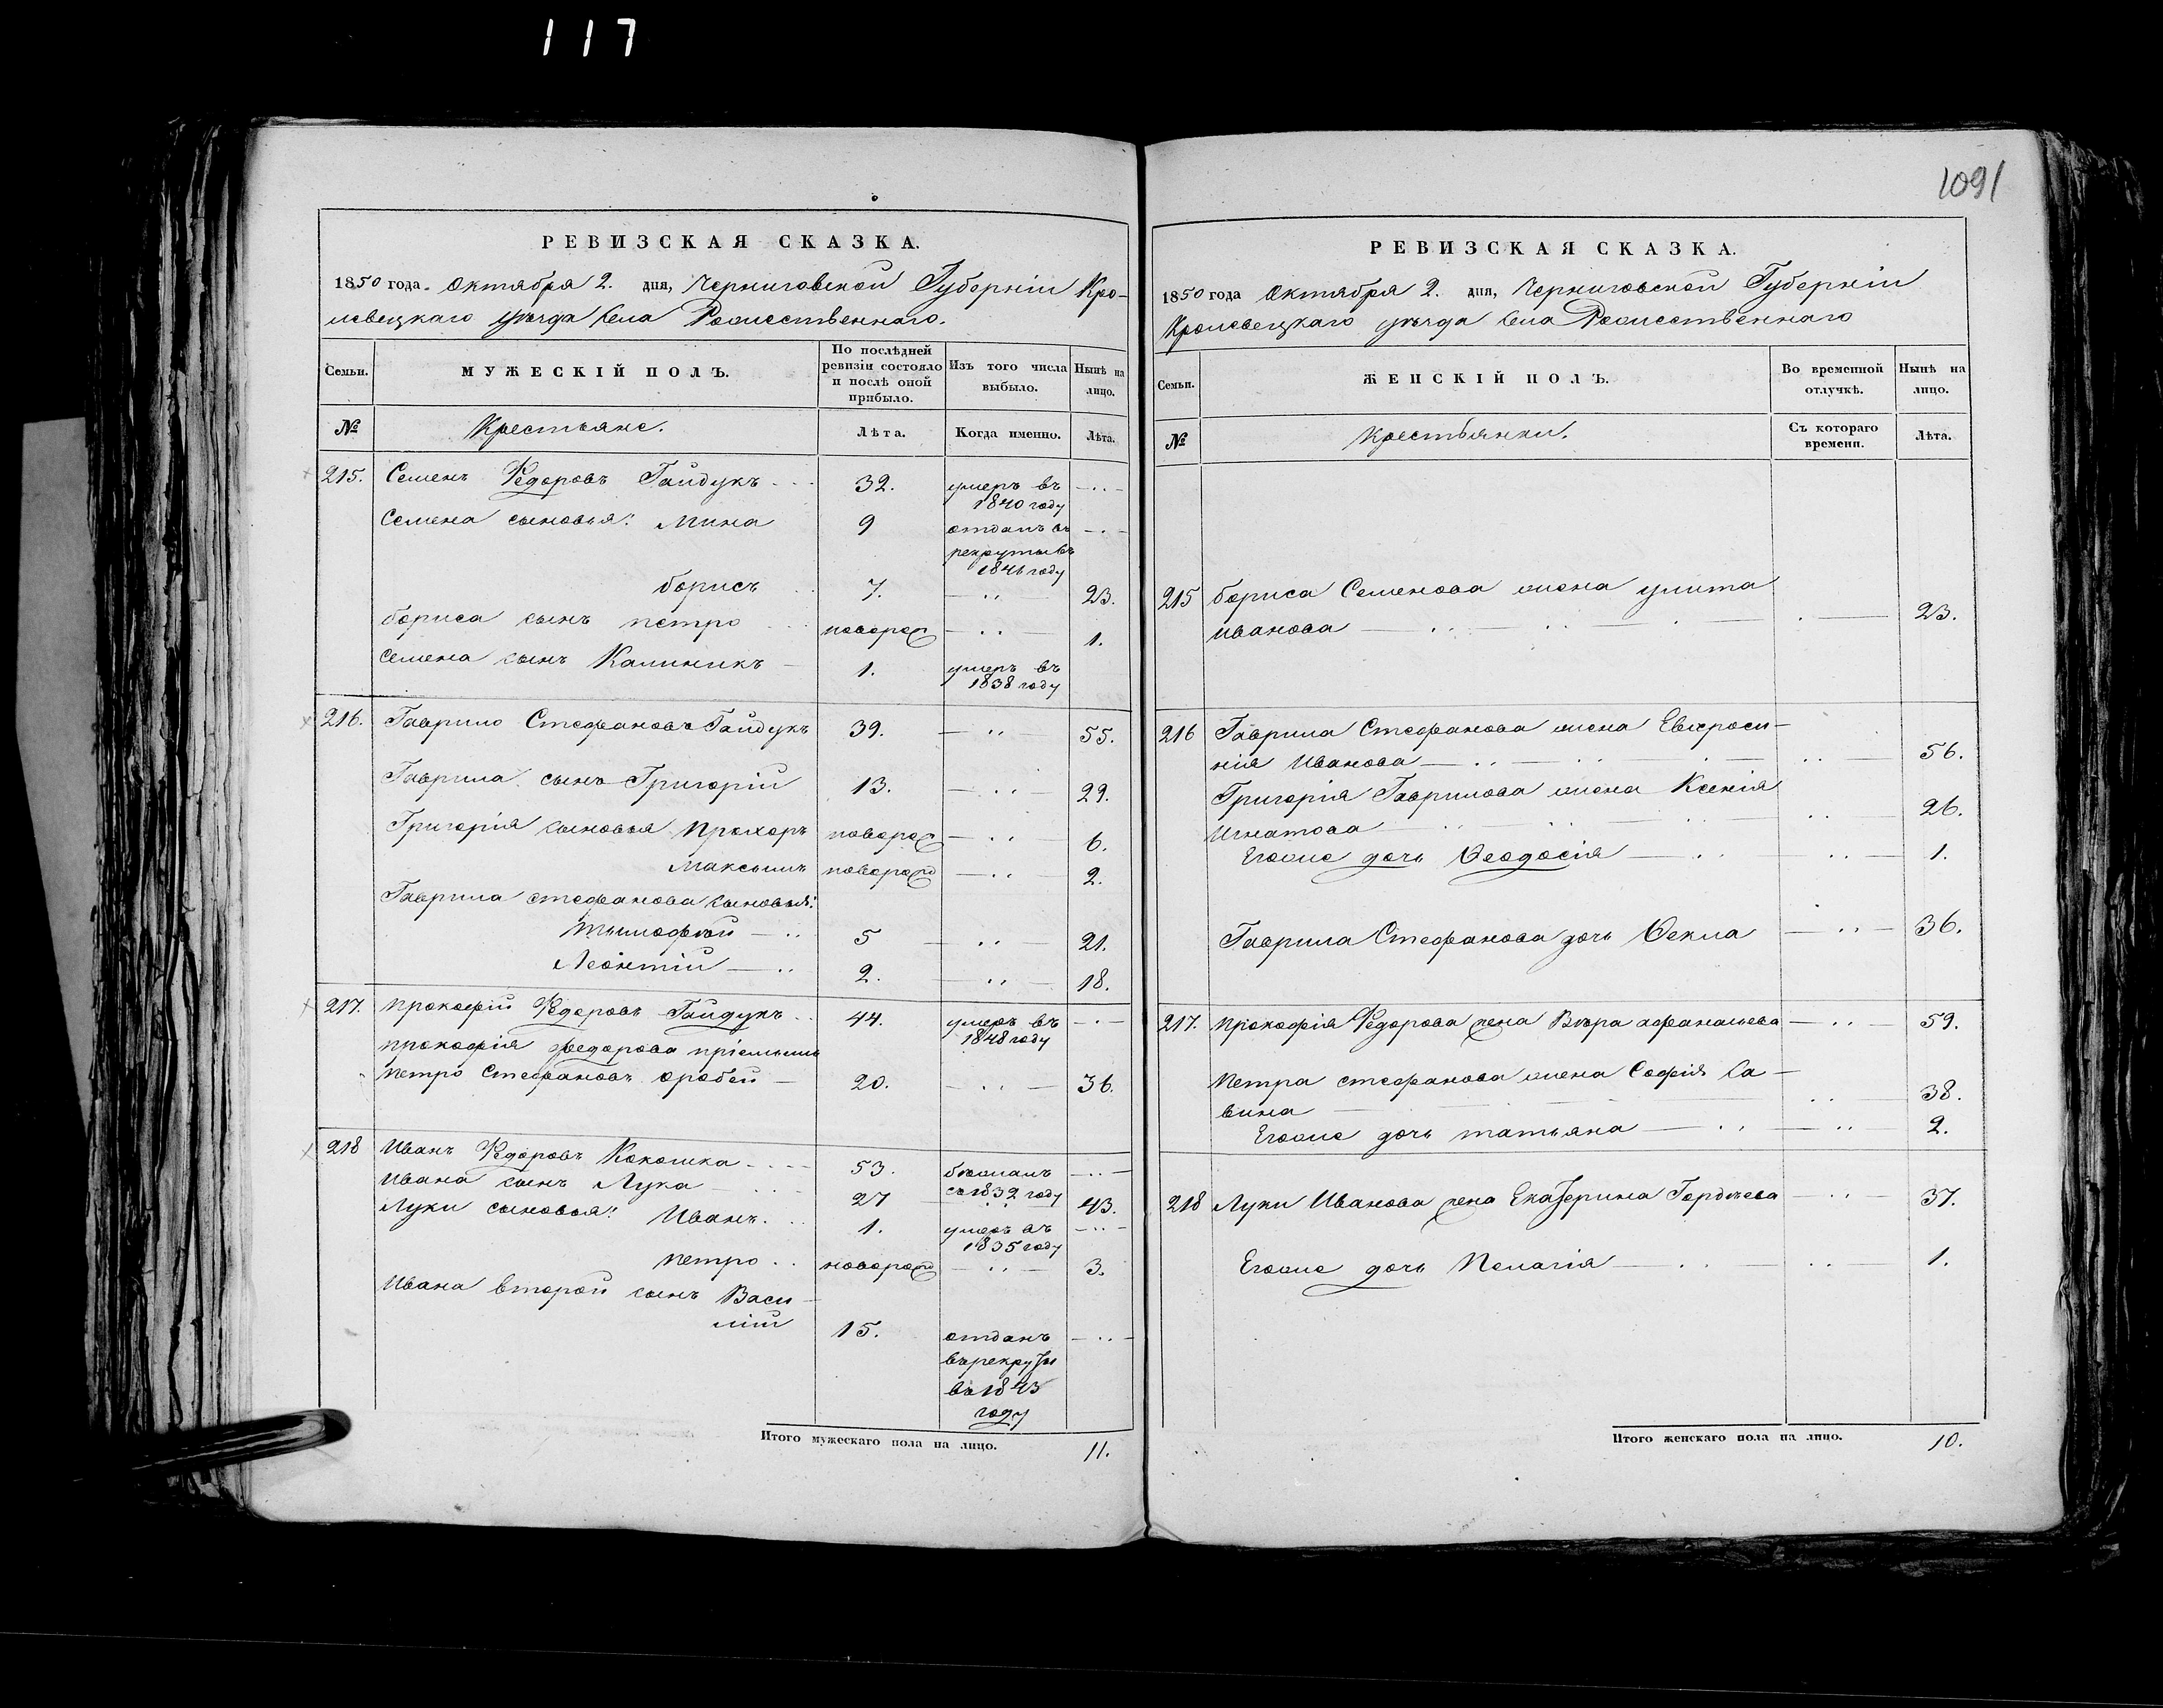 117
1091
РЕВИЗСКАЯ СКАЗКА.
1850 года. Октября 2. дня, Черниговской Губерніи Кро-
левецкаго уѣзда Села Рождественнаго.
Семьи.
МУЖЕСКІЙ ПОЛЪ.
По послѣдней ревизіи состояло и послѣ оной прибыло.
Изъ того числа выбыло.
Нынѣ на лицо.
№
Крестьяне.
Лѣта.
Когда именно.
Лѣта.
215. Семенъ Федоровъ Гайдукъ 32. умеръ въ 1840 году
Семена сыновья: Мина 9 отданъ въ рекруты въ 1846 году
борисъ 7. 23.
бориса сынъ петро новорож 1.
Семена сынъ Калиникъ 1. умеръ въ 1838 году
216. Гаврило Стефановъ Гайдукъ 39. 55.
Гаврила сынъ Григорій 13. 29.
Григорія сыновья Прохоръ новорож 6.
Максимъ новорожд 2.
Гаврила стефанова сыновья:
тимофѣй 5 21.
Леонтій 2. 18.
217. Прокофій Федоровъ Гайдукъ 44. умеръ въ 1848 году
прокофія федорова пріемышъ
Петро Стефановъ оробей 20. 36.
218 Иванъ Федоровъ Кокошка 53. бѣжалъ съ 1832 году
Ивана сынъ Лука 27 43.
Луки сыновья: Иванъ. 1. умеръ въ 1835 году
петро новорожд 3.
Ивана второй сынъ Васи-
лій 15. отданъ въ рекруты въ 1843 году
Итого мужескаго пола на лицо. 11.
РЕВИЗСКАЯ СКАЗКА.
1850 года Октября 2. дня, Черниговской Губерніи
Кролевецкаго уѣзда Села Рождественнаго
Семьи.
ЖЕНСКІЙ ПОЛЪ.
Во временной отлучкѣ.
Нынѣ на лицо.
№
Крестьянки.
Съ котораго времени.
Лѣта.
215 бориса Семенова жена улита
иванова 23.
216 Гаврила Стефанова жена Евфроси-
нія Иванова 56.
Григорія Гаврилова жена Ксенія
Игнатова 26.
Егоже дочь Ѳеодосія 1.
Гаврила Стефанова дочь Ѳекла 36.
217. Прокофія Федорова жена Вѣра афанасьева 59.
Петра стефанова жена Софія Са-
вина 38.
Егоже дочь татьяна 2.
218 Луки Иванова жена Екатерина Гордѣева 37.
Егоже дочь Пелагія 1.
Итого женскаго пола на лицо. 10.